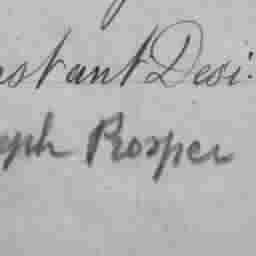 nstant Desi:
eph Prosper